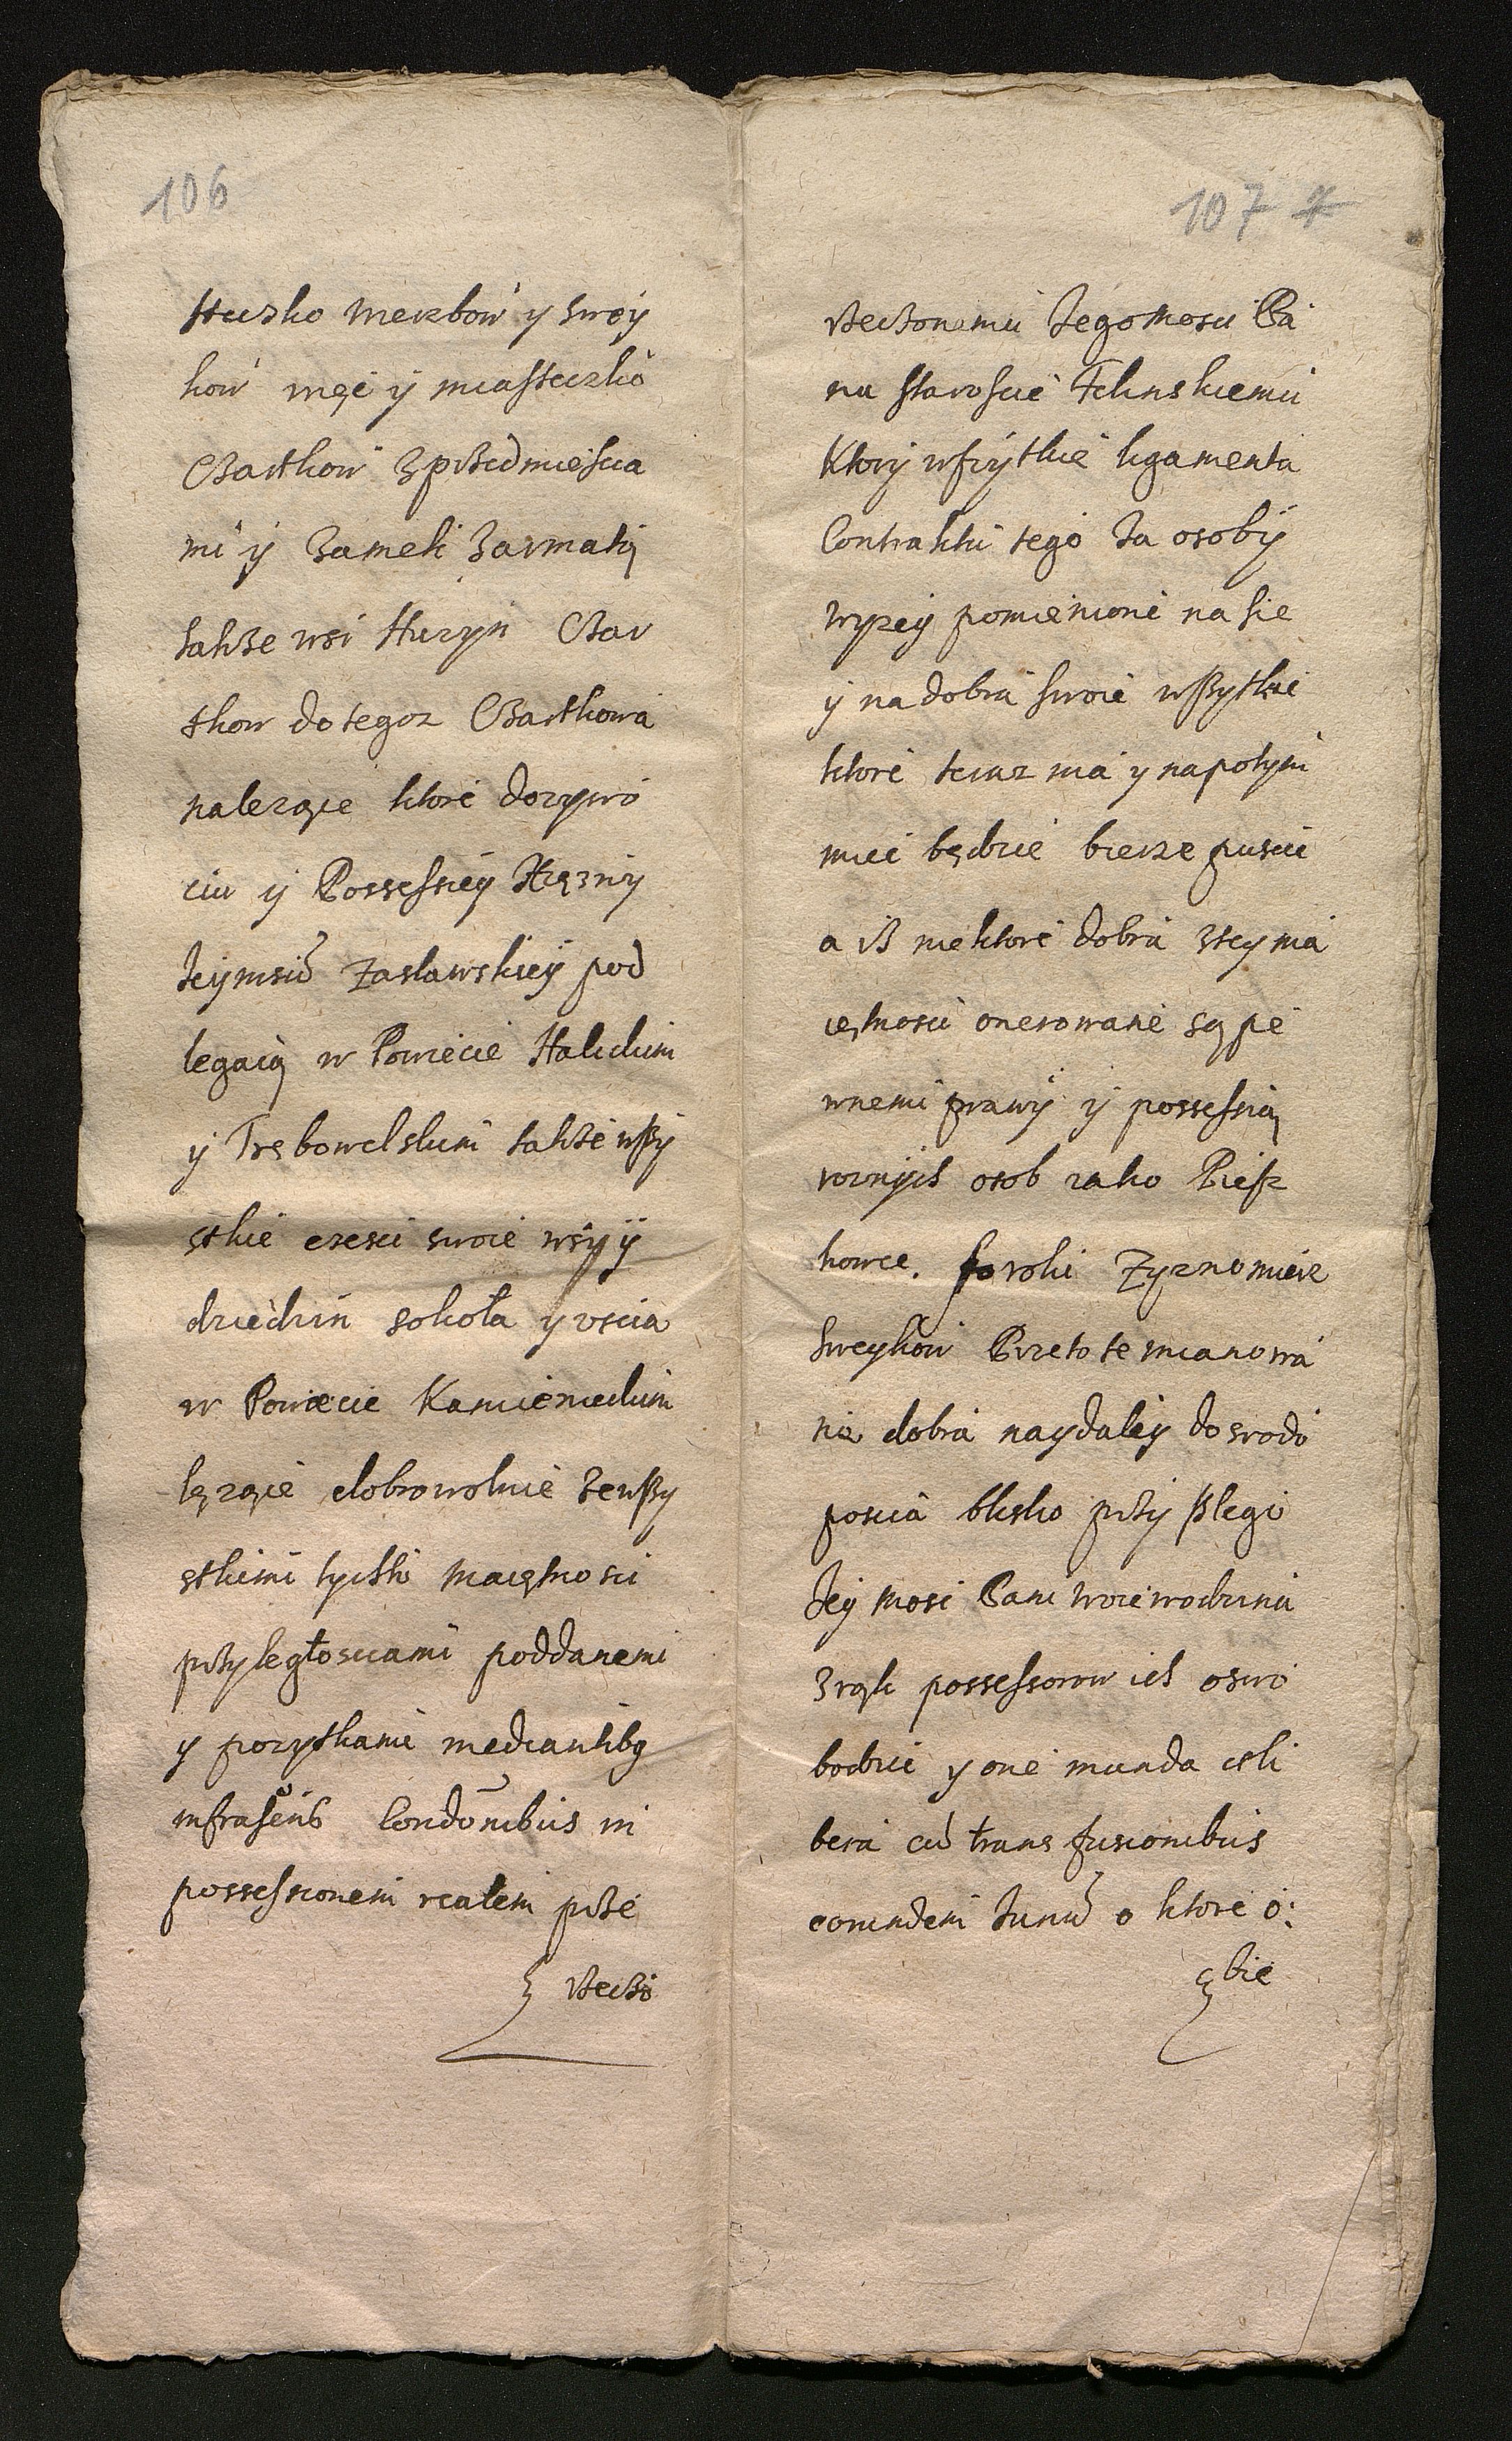 106
Huzko Merzbow y Swoy
kow wsie y miasteczko
Czartkow z przedmiescia
mi y Zamek z armatą
także wsi Huryn Czar
tkow do tegoz Czartkowa
nalezące ktore dozywo
ciu y Possessiey Xiężny
Jeymści Zasławskiey pod
legaią w Powiecie Halickim
y Trębowelskim także wszy
stkie czesci swoie wsi y
dziedzin Sokoła y Uscia
w Powiecie Kamienieckim
lężące dobrowolnie ze wszy
stkimi tychże maiętnosci
przyległosciami poddanemi
y pozytkami mediantibg
infrascriptis Condōnibus in
possessionem realem prze
rzeczo
107 7
rzeczonemu Jego Mosci Pa
nu Staroscie Felinskiemu
Ktory wszytkie ligamenta
Contraktu tego za osoby
wyzey pomienione na sie
y na dobra swoie wszytkie
ktore teraz ma y napotym
miec będzie bierze pusci
a iż niektore dobra z tey ma
iętnosci onerowane są pe
wnemi prawy y possessią
roznych osob iako Piesz
kowce. Soroki Zyznomierz
Sweykow Przeto te mianowa
nia dobra naydaley do srodo
poscia blisko przyszlego
Jey Mosc Pani Woiewodzina
z rąk possessorow ich oswo
bodzi y one munda et li
bera cu transfusionibus
eorundem Jurium o ktore o:
bie